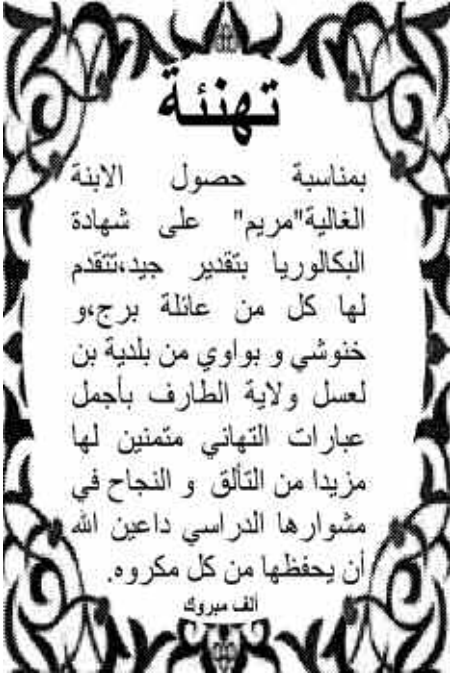 تهنئة
بمناسبة حصول الابنة
الغالية"مريم" على شهادة
البكالوريا بتقدير جيد،تتقدم
لها كل من عائلة برج،و
خنوشي و بواوي من بلدية بن
لعسل ولاية الطارف بأجمل
عبارات التهاني متمنين لها
مزيدا من التألق و النجاح في
مشوارها الدراسي داعين الله
أن يحفظها من كل مكروه.
ألف مبروك